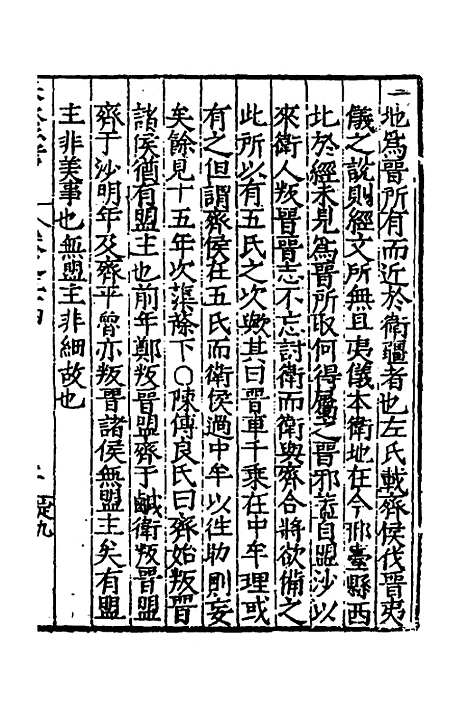 地爲晉所有而近於衛疆者也左氏載齊侯伐晉夷
儀之說則經文所無且夷儀本衛地在今邢臺縣西
此於經未見爲晉所取何得屬之晉邪蓋自盟沙以
來衛人叛晉晉志不忘討衛而衛與齊合將欲備之
此所以有五氏之次歟其曰晉車千乘在中牟理或
有之但謂齊侯在五氏而衛侯過中牟以往助則妄
矣餘見十五年次蕖蒢下○陳傅良氏曰齊始叛晉
諸侯猶有盟主也前年鄭叛晉盟齊于鹹衛叛晉盟
齊于沙明年及齊平魯亦叛晉諸侯無盟主矣有盟
主非美事也無盟主非細故也
定九